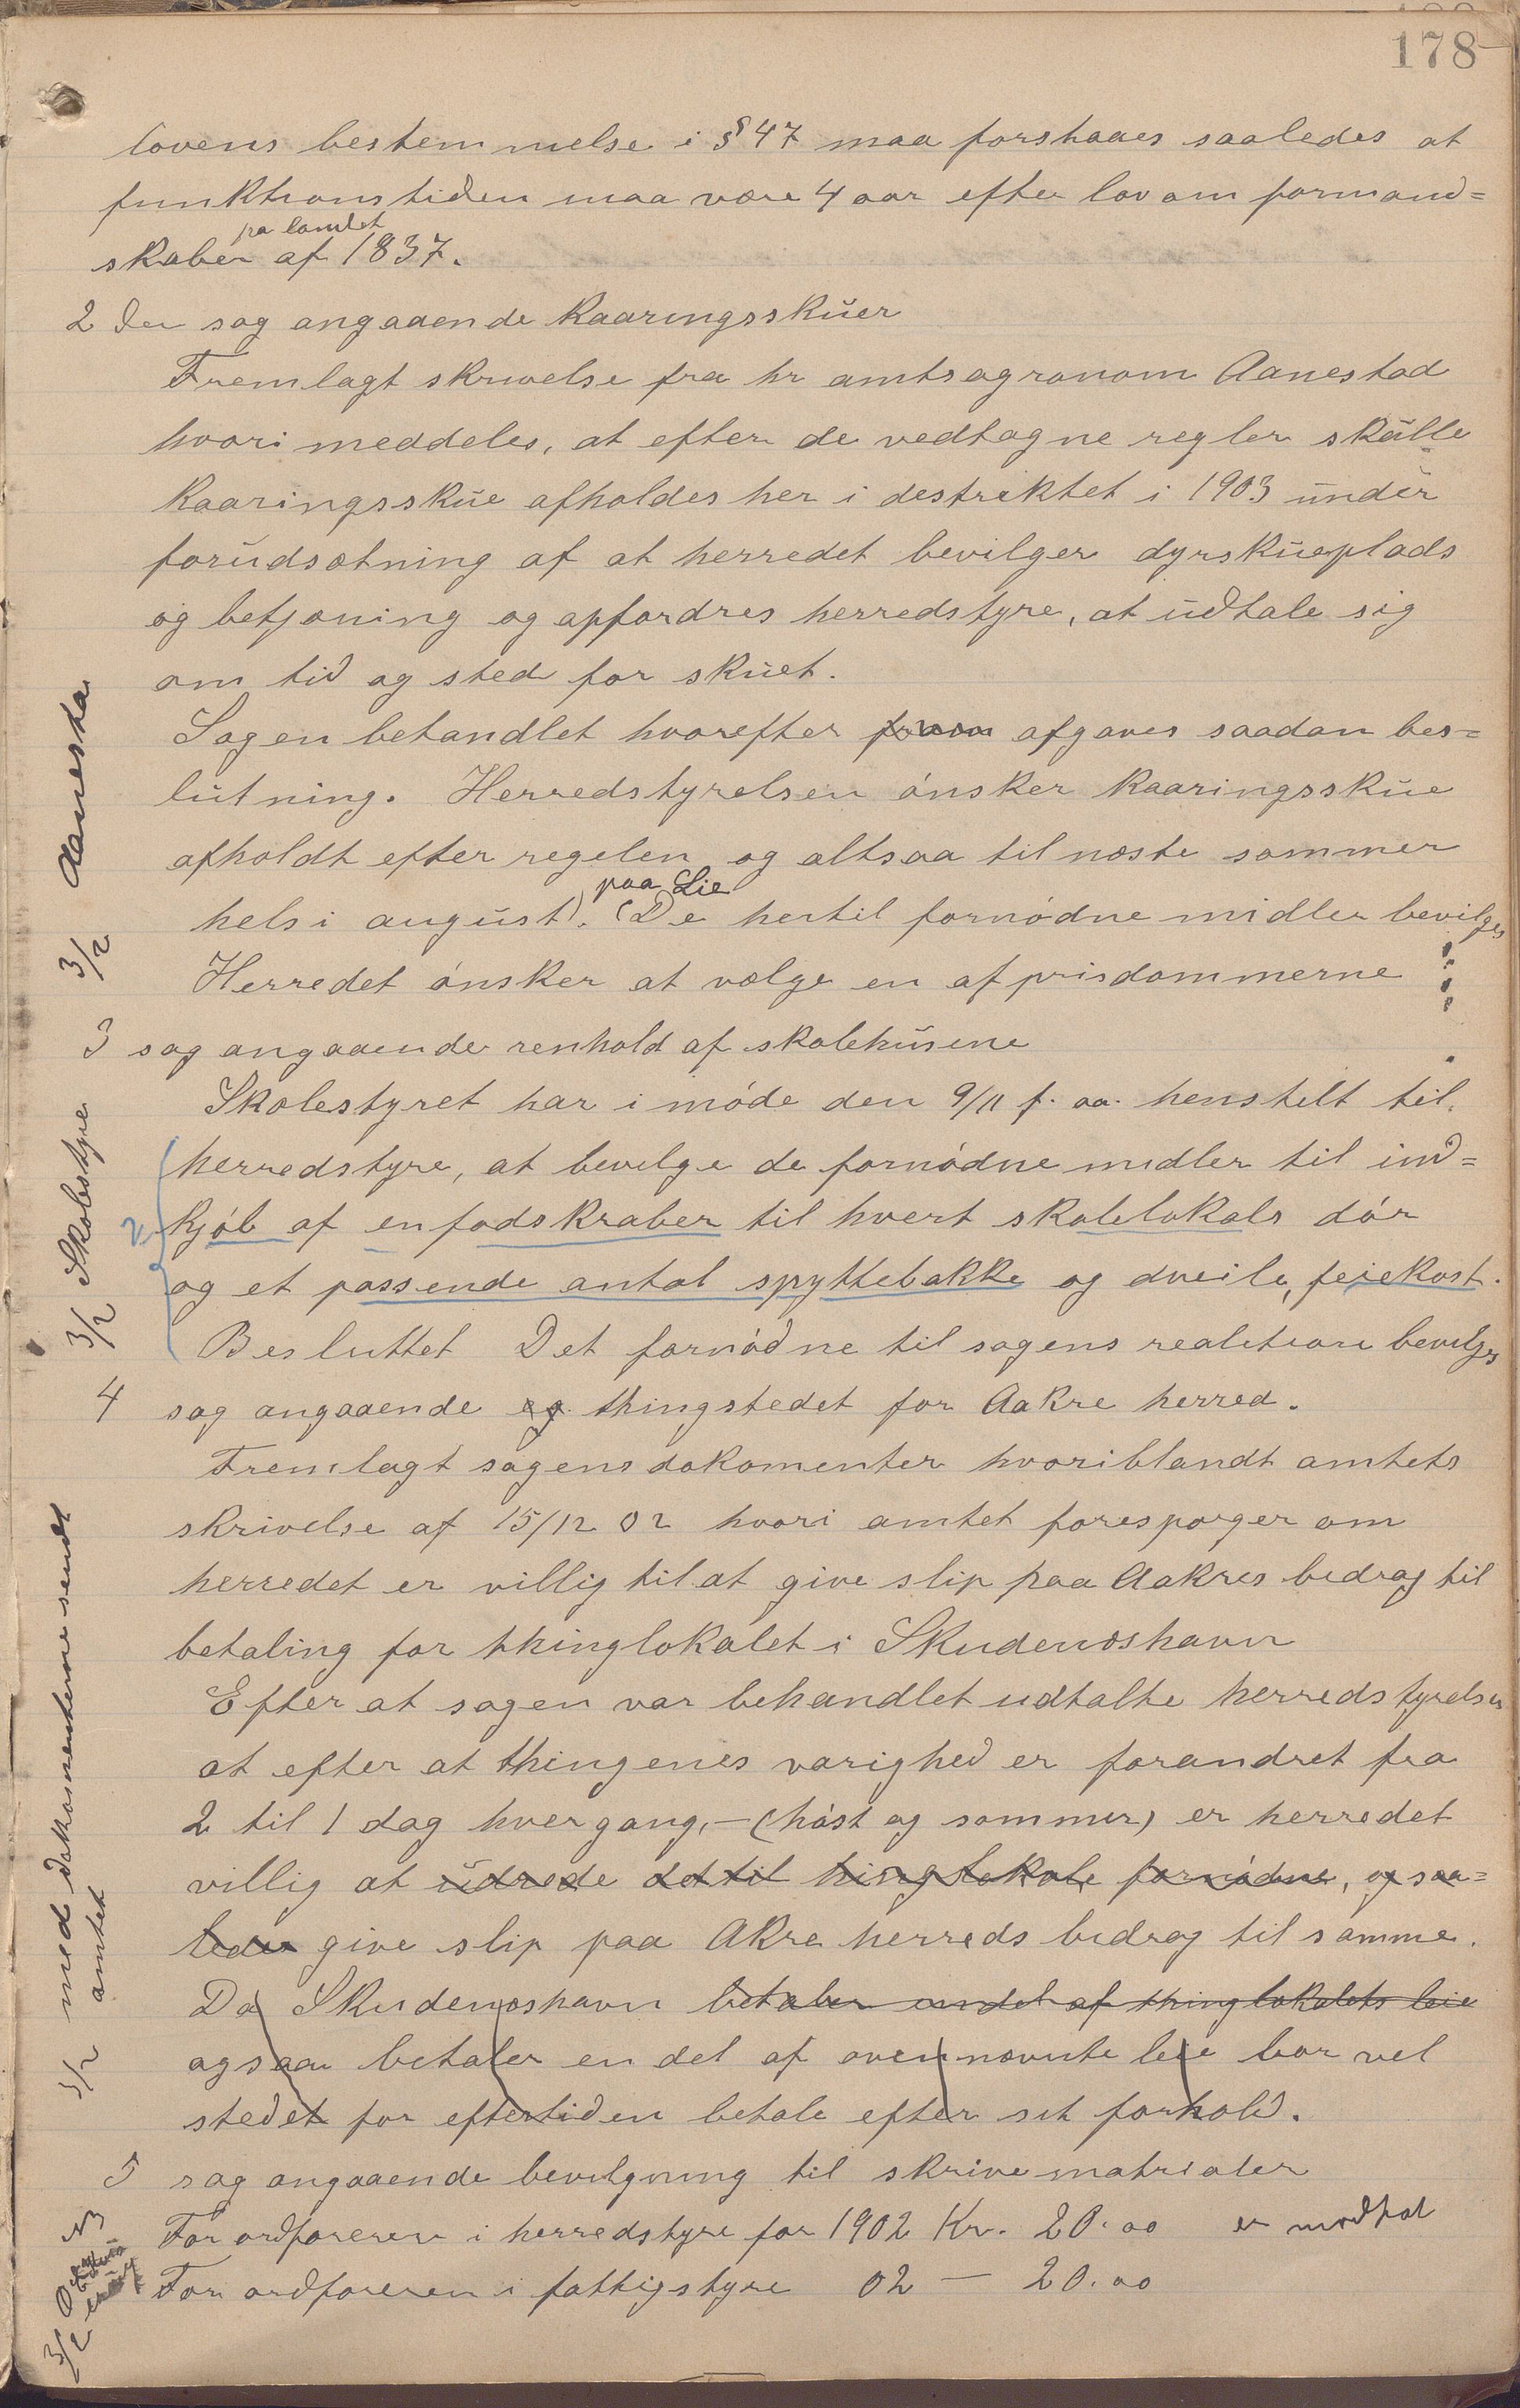 178
lovens bestemmelse i § 47 maa forstaaes saaledes at
funktionstiden maa være 4 aar efter lov om formand=
pa landet
skaber af 1837.
2 den sag angaaende Kaaringsskuer
Fremlagt skrivelse fra hr amtsagronom Aanestad
hvori meddeles, at efter de vedtagne regler skulle
Kaaringsskue afholdes her i destriktet i 1903 under
forudsætning af at herredet bevilger dyrskueplads
og betjening og opfordres herredstyre, at udtale sig
om tid og sted for skuet.
Sagen behandlet hvorefter afgaves saadan bes=
lutning. Herredstyrelsen ønsker Kaaringsskue
afholdt efter regelen og altsaa til næste sommer
paa Lie
hels i august). (De hertil fornødne midler bevilges
Herredet ønsker at vælge en af prisdommerne
3/2 Aanesta
3 sag angaaende renhold af skolehusene
Skolestyret har i møde den 9/11 f. aa. henstilt til
herredstyre, at bevilge de fornødne midler til ind=
kjøb af en fodskraber til hvert skolelokals dør
og et passende antal spyttebakke og dveile, feiekost.
Besluttet Det fornødne til sagens realition bevilges
3/2 Skolestyre
4 sag angaaende og thingstedet for Aakre herred.
Fremlagt sagens dokomenter hvoriblandt amtets
skrivelse af 15/12 02 hvori amtet foresporger om
herredet er villig til at give slip paa Aakres bedrag til
betaling for thinglokalet i Skudenæshavn
Efter at sagen var behandlet udtalte herredstyrelsen
at efter at thingenes varighed er forandret fra
2 til 1 dag hver gang, – (høst og sommer) er herredet
villig at udrede det til thinglokale fornødne, og saa=
ledes give slip paa Akre herreds bidrag til samme.
Da Skudenæshavn betaler andel af thinglokalets leie
ogsaa betaler en del af ovennævnte leie bør vel
stedet for eftertiden betale efter sit forhold.
3/2 med dokomenterne sendt
amtet
5 sag angaaende bevilgning til skrivematrialer
For ordføreren i herredstyre for 1902 Kr. 20.00 er modtat
For ordføreren i fattigstyre 02 — 20.00
3/2